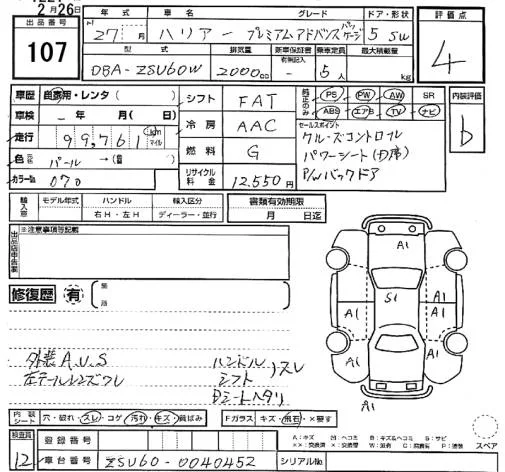 2月26日
出品番号
107
年式
車名
グレード
ドア・形状
評価点
27 月
ハリアー
プレミアムアドバンスパッケージ
5 SW
4
型式
排気量
新車保証書
有無記入
乗車定員
最大積載量
DBA-ZSU60W
2000cc
-
5人
kg
車歴
自家用・レンタ( )
車検
- 年 月( 日)
走行
99,761
km
マイル
色
パール →(替 )
カラー№
070
シフト
FAT
冷房
AAC
燃料
G
リサイクル料金
12,550円
純正のみ
PS PW AW SR
ABS エアB TV ナビ
セールスポイント
クルーズコントロル
パワーシート(D席)
P/Wバックドア
内装評価
b
輸入車
モデル年式
ハンドル
右H・左H
輸入区分
ディーラー・並行
書類有効期限
月 日迄
出品店申告欄
※注意事項等記載
修復歴
有
箇所
外装 A.U.S
左テールレンズワレ
ハンドル
シフト
スレ
Dシートヘタリ
A1
A1
A1
A1
A1
A1
S1
A1
内装シート
穴・破れ・スレ・コゲ・汚れ・キズ・黄ばみ
Fガラス
キズ・飛石・×要す
検査員
12
登録番号
車台番号
ZSU60-0040452
シリアルNo.
A:キズ M:ヘコミ B:キズ&ヘコミ S:サビ
スペア